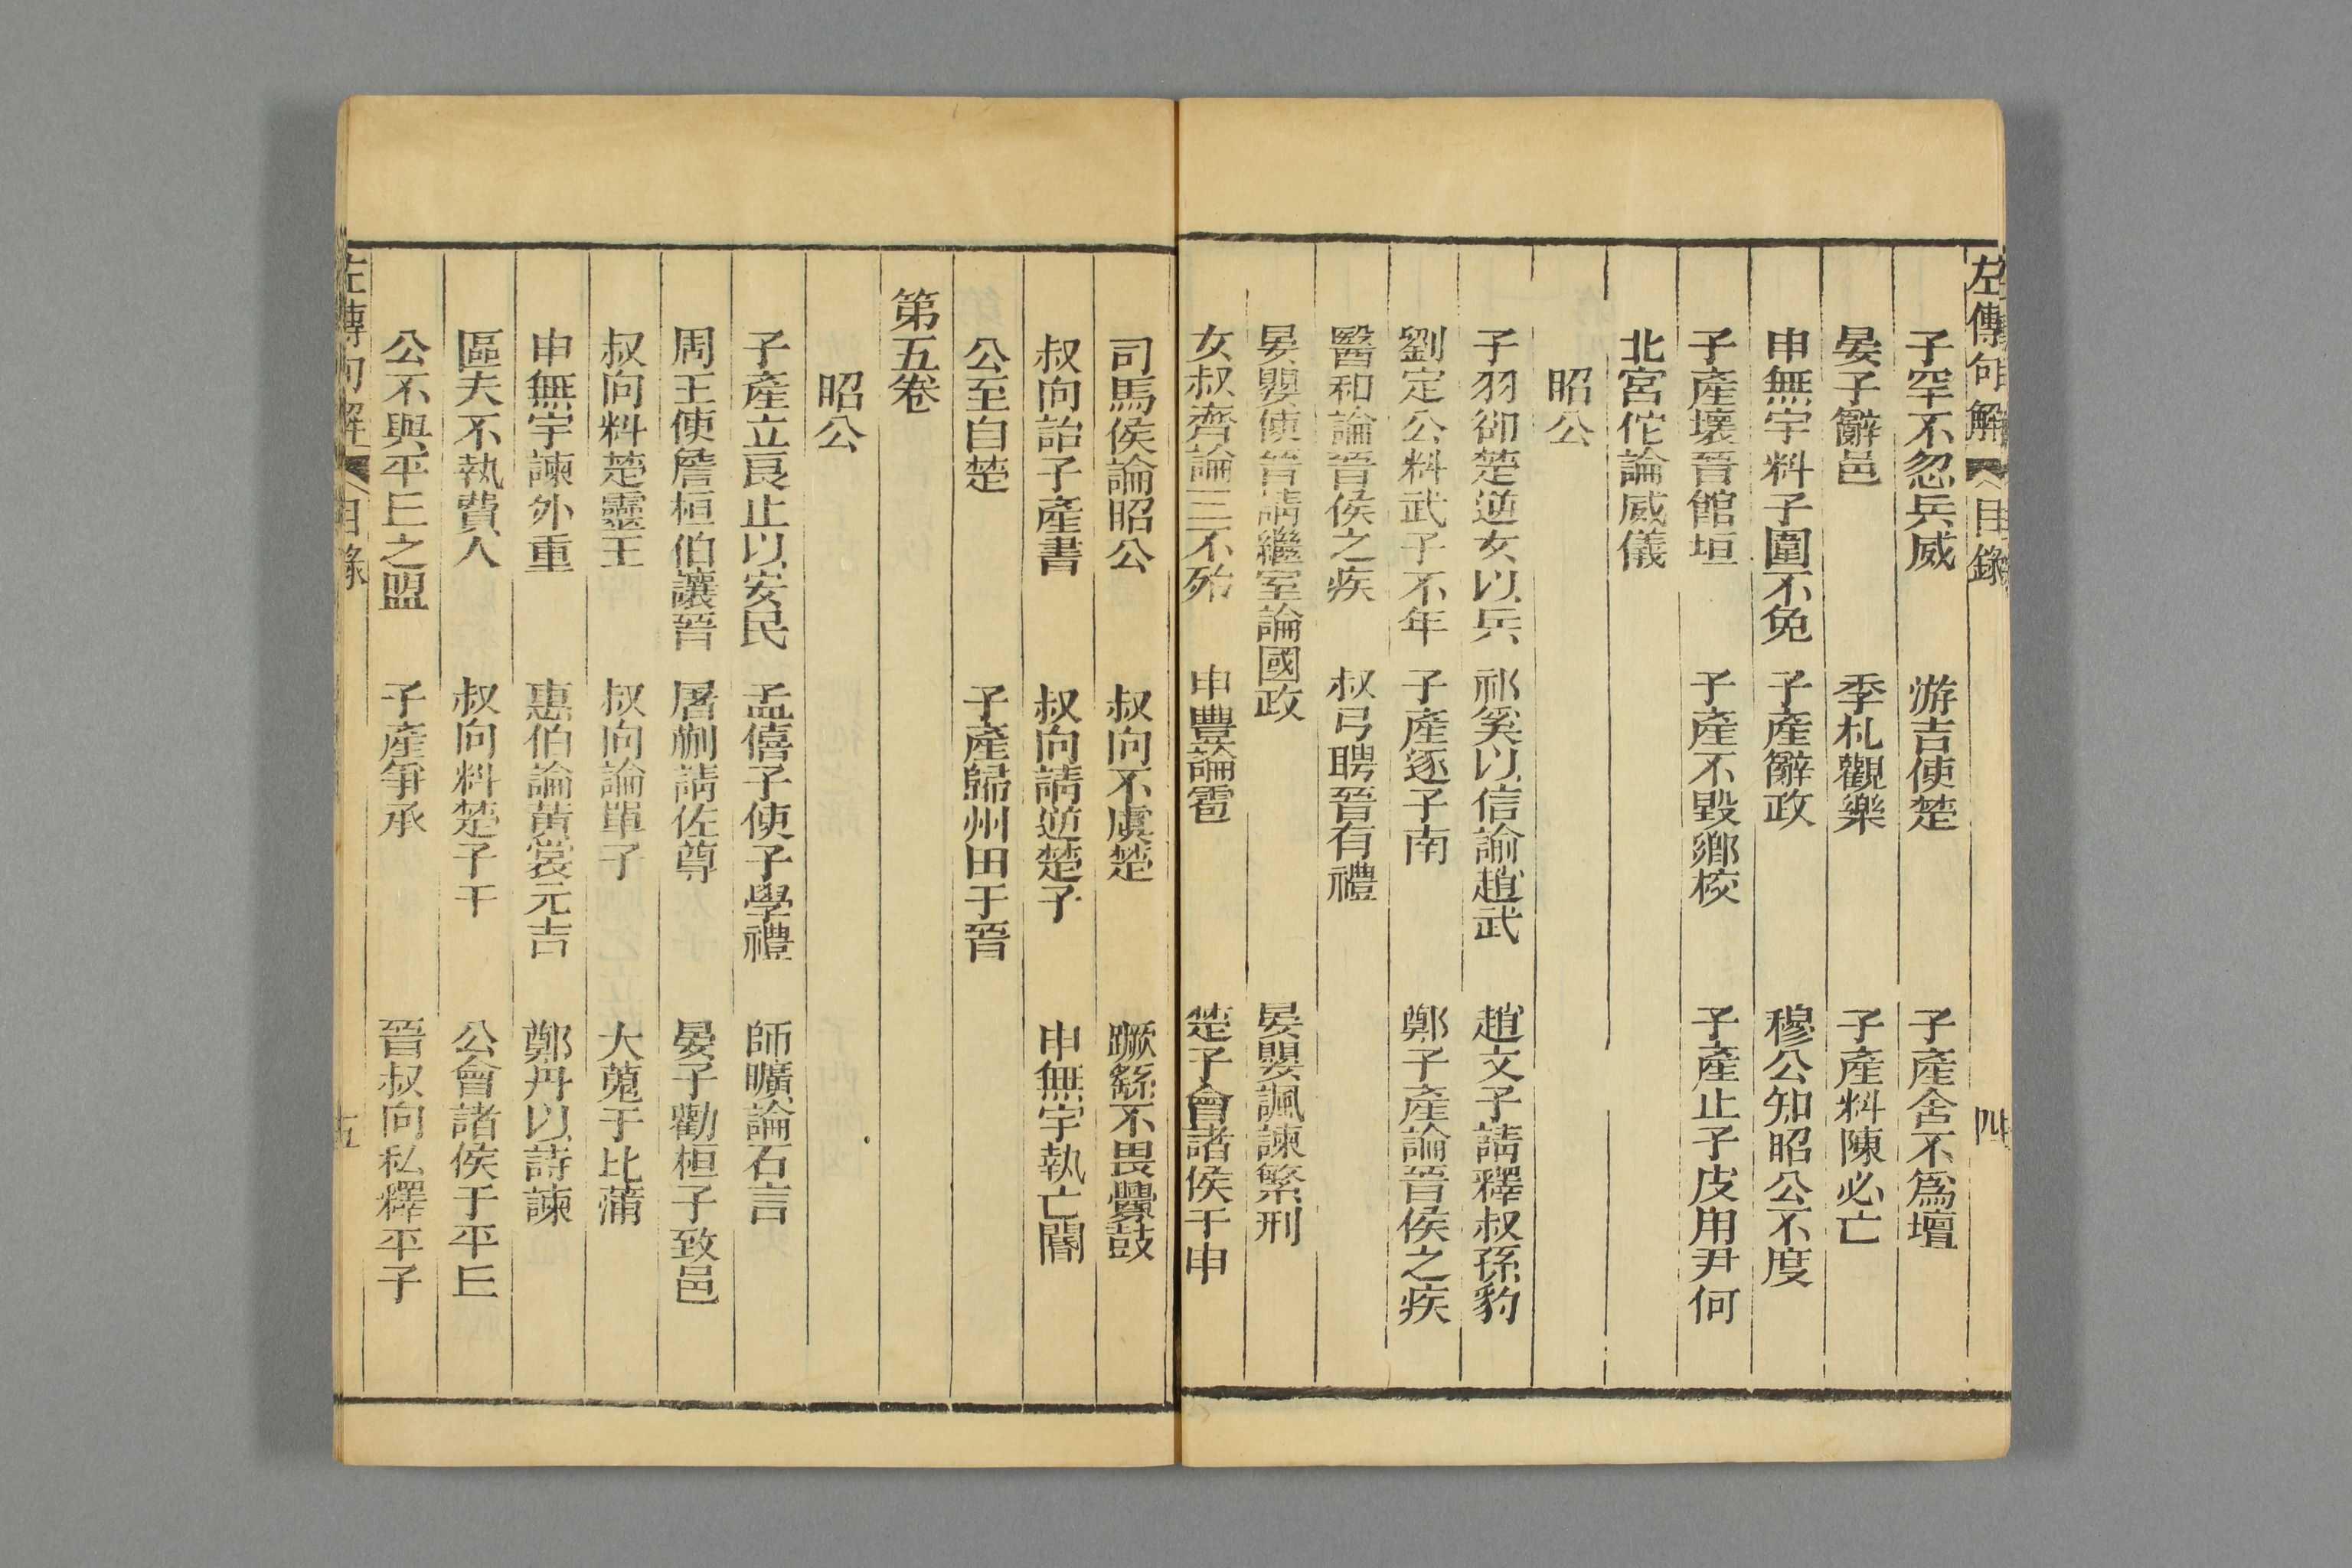 左傳句解 目錄 四
子罕不忍兵威 游吉使楚 子產舍不爲壇
晏子辭邑 季札觀樂 子產料陳必亡
申無宇料子圍不免 子產辭政 穆公知昭公不度
子產壞晉館垣 子產不毀鄉校 子產止子皮用尹何
北宮佗論威儀
昭公
子羽卻楚逆女以兵 祁奚以信諭趙武 趙文子請釋叔孫豹
劉定公料武子不年 子產逐子南 鄭子產論晉侯之疾
醫和論晉侯之疾 叔弓聘晉有禮
晏嬰使晉請繼室論國政 晏嬰諷諫繁刑
女叔齊論三不殆 申豐論雹 楚子會諸侯于申
司馬侯論昭公 叔向不虞楚 蹶繇不畏釁鼓
叔向詒子產書 叔向請逆楚子 申無宇執亡閽
公至自楚 子產歸州田于晉
第五卷
昭公
子產立良止以安民 孟僖子使子學禮 師曠論石言
周王使詹桓伯讓晉 屠蒯請佐尊 晏子勸桓子致邑
叔向料楚靈王 叔向論單子 大蒐于比蒲
申無宇諫外重 惠伯論黃裳元吉 鄭丹以詩諫
區夫不執費人 叔向料楚子干 公會諸侯于平丘
公不與平丘之盟 子產爭承 晉叔向私釋平子
左傳句解 目錄 五